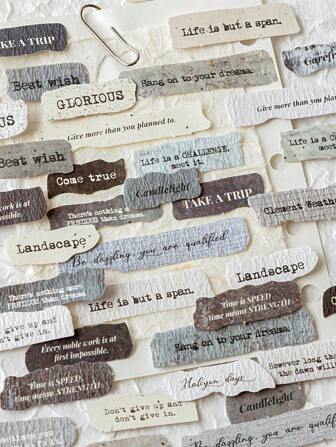 KE A TRIP
Life is but a span.
Best wish
Hang on to your dreams.
Carefr
GLORIOUS
US
Give more than you
Give more than you planned to.
Life is a CHALLENGE,
meet it.
Life is a C
meet
Best wish
Come true
Candlelight
TAKE A TRIP
work is at
possible.
There's nothing more
PRECIOUS than dreams.
Clement Weathe
Landscape
Be dazzling, you are qualified.
Landscape
There's nothing more
PRECIOUS than dreams.
Life is but a span.
Time is SPEED,
time means STRENGTH.
give up and
't give in.
Hang on to your dreams.
Every noble work is at
first impossible.
However long
the dawn will
Time is SPEED,
time means STRENGTH.
Halcyon days
Candlelight
Don't give up and
don't give in.
Best wish